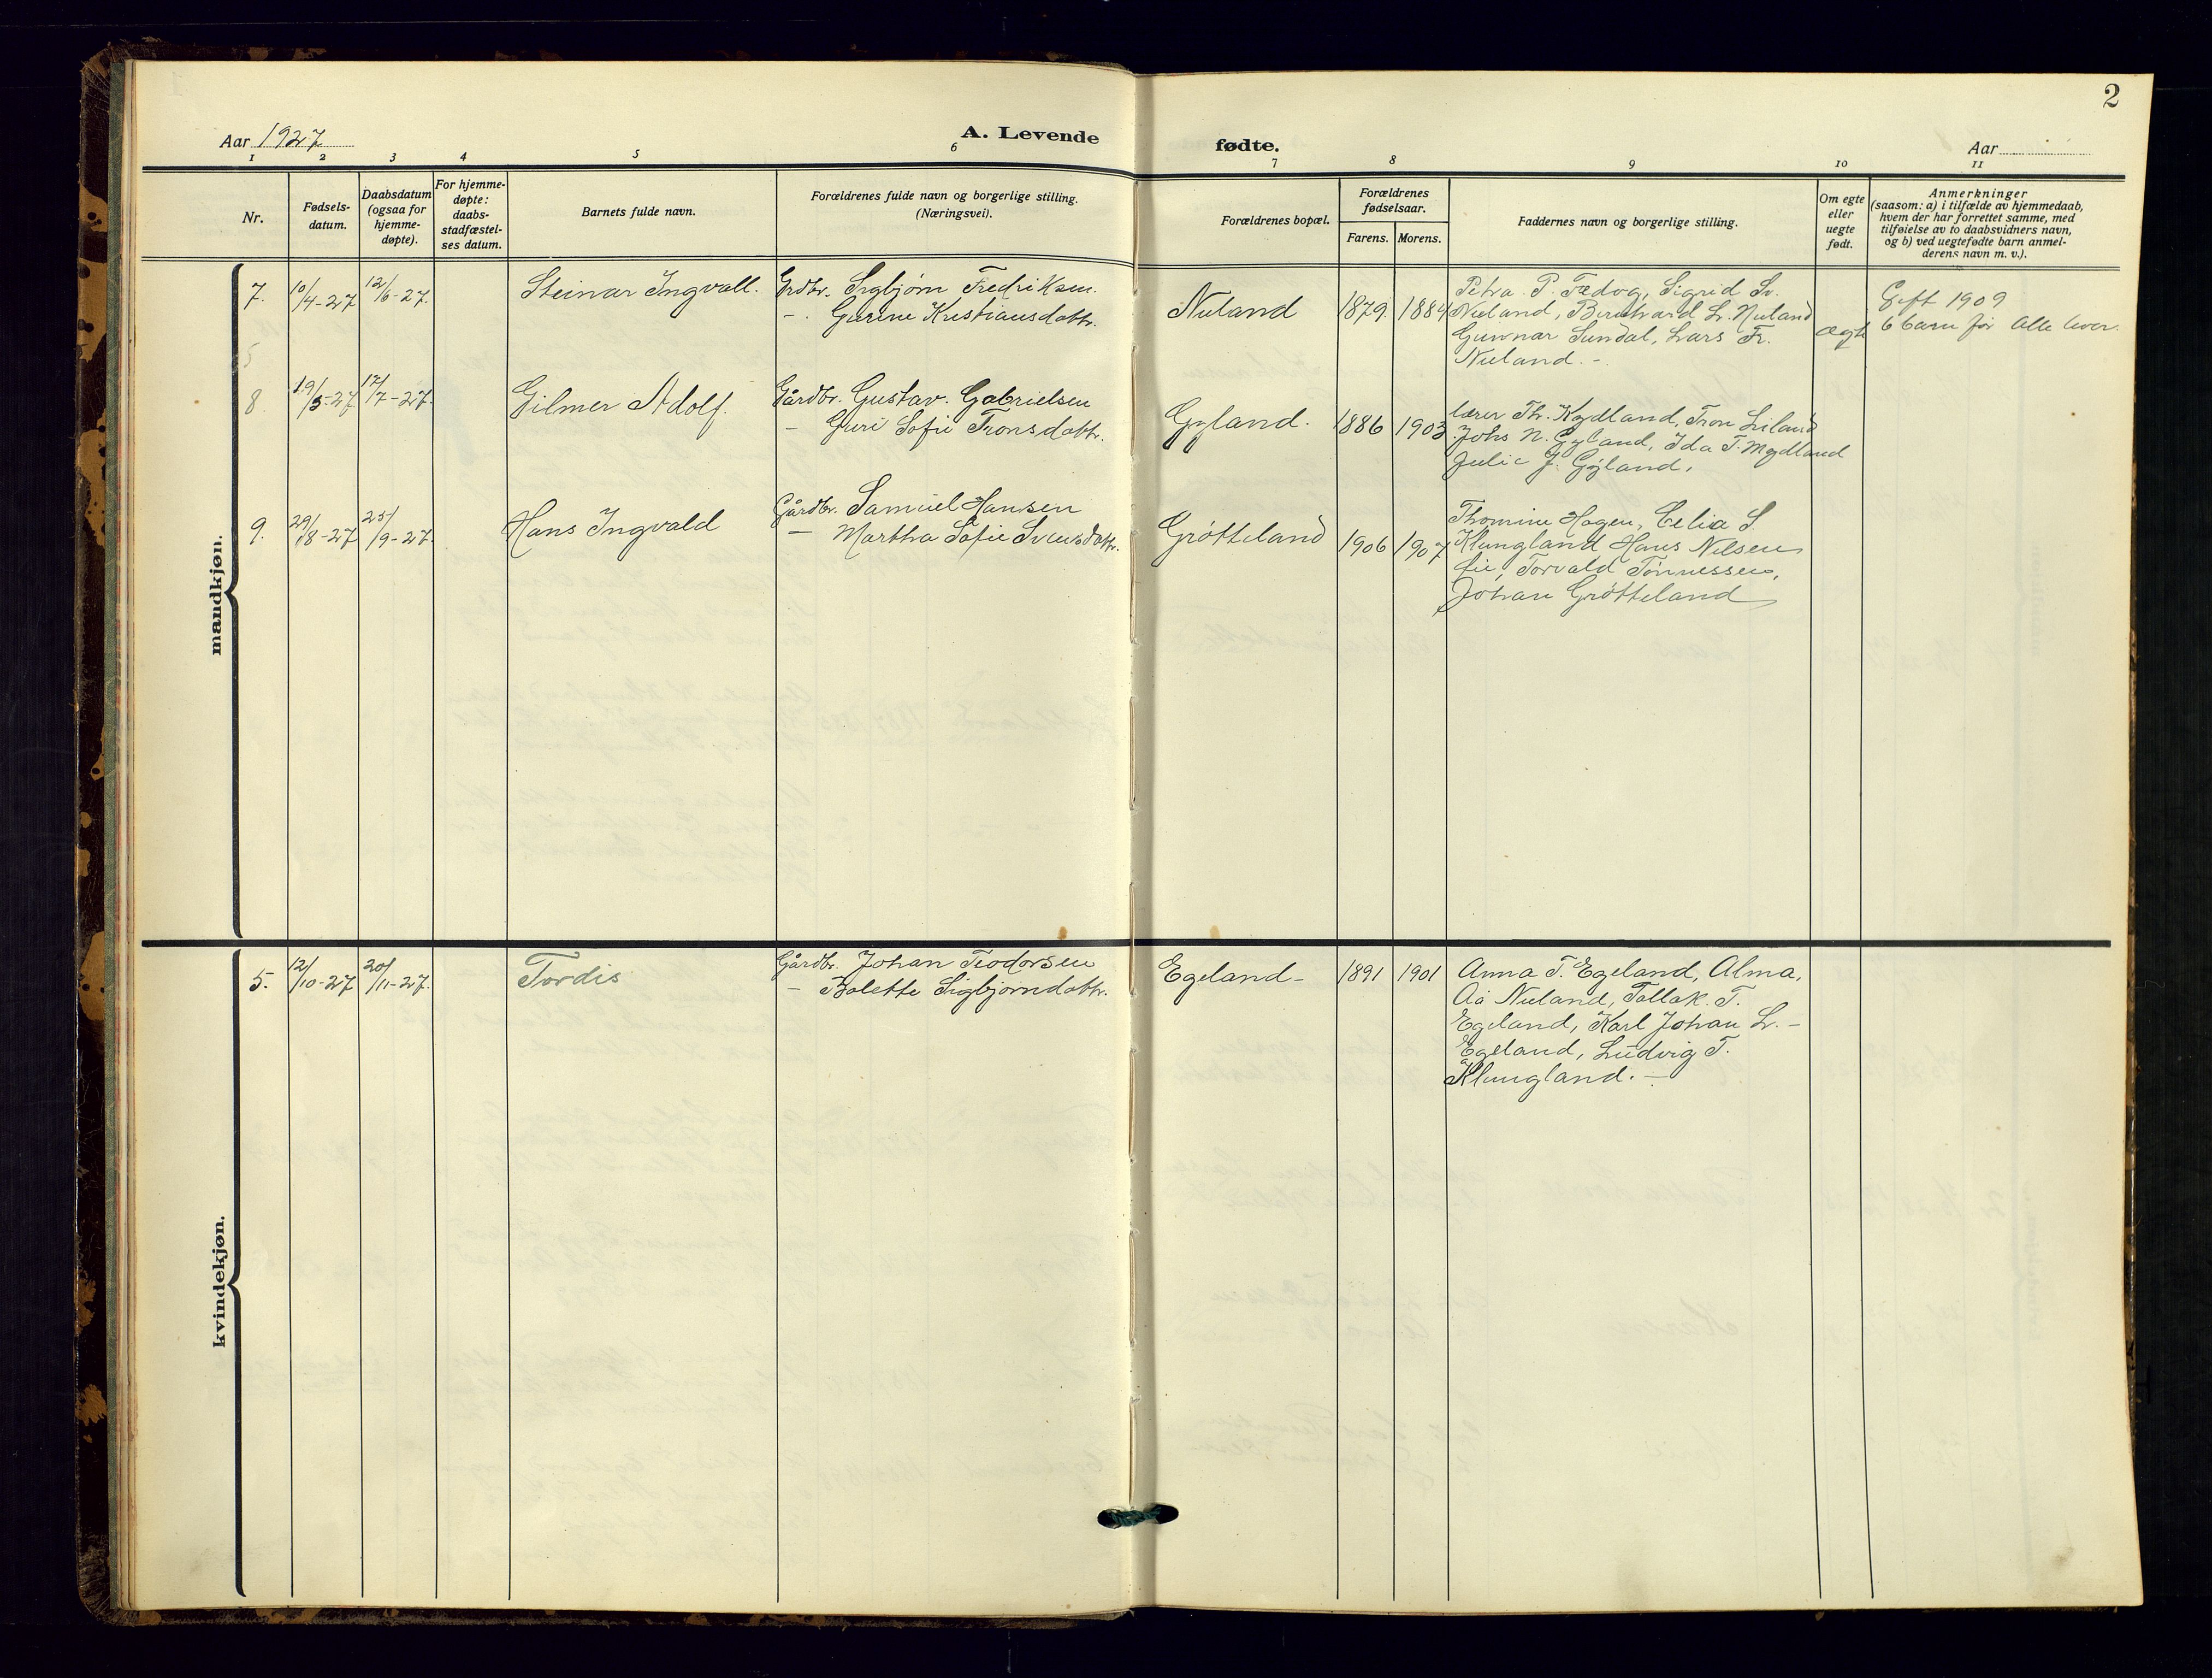 2
Aar 1927
A. Levende
fødte.
Aar
1 2 3 4 5 6 7 8 9 10 11
Nr.
Fødsels-
datum.
Daabsdatum
(ogsaa for
hjemme-
døpte).
For hjemme-
døpte:
daabs-
stadfæstel-
ses datum.
Barnets fulde navn.
Forældrenes fulde navn og borgerlige stilling.
(Næringsvei).
Forældrenes bopæl.
Forældrenes
fødselsaar.
Farens. Morens.
Faddernes navn og borgerlige stilling.
Om egte
eller
uegte
født.
Anmerkninger
(saasom: a) i tilfælde av hjemmedaab,
hvem der har forrettet samme, med
tilføielse av to daabsvidners navn,
og b) ved uegtefødte barn anmel-
derens navn m. v.).
mandkjøn.
7. 10/4-27 12/6-27. Steinar Ingvall. Grdbr. Sigbjørn Fredriksen.
- Gurine Kristiansdattr.
Nuland 1879 1884
Petra P. Fedog, Sigrid Sv.
Nuland, Bernhard L. Nuland
Gunnar Sundal, Lars Fr.
Nuland. -
ægte
Gift 1909
6 barn før Alle lever.
8. 19/5-27 17/7-27. Gilmer Adolf. Gårdbr. Gustav Gabrielsen
- Guri Sofie Tronsdattr.
Gyland. 1886 1903
lærer Th. Kydland, Tron Liland
Johs N. Gyland, Ida T. Mydland
Julie J. Gyland.
9. 29/8-27 25/9-27. Hans Ingvald Gårdbr. Samuel Hansen
- Martha Sofie Svensdattr.
Grøtteland 1906 1907
Thomine Hagen, Celia S.
Klungland Hans Nilsen
Lie, Torvald Tønnessen,
Johan Grøtteland
kvindekjøn.
5. 12/10-27 20/11-27. Tordis Gårdbr. Johan Teodorsen
- Bolette Sigbjørndattr.
Egeland- 1891 1901
Anna T. Egeland, Alma,
Aå Nuland, Tollak. T.
Egeland, Karl Johan L. -
Egeland, Ludvig T.
Klungland. -